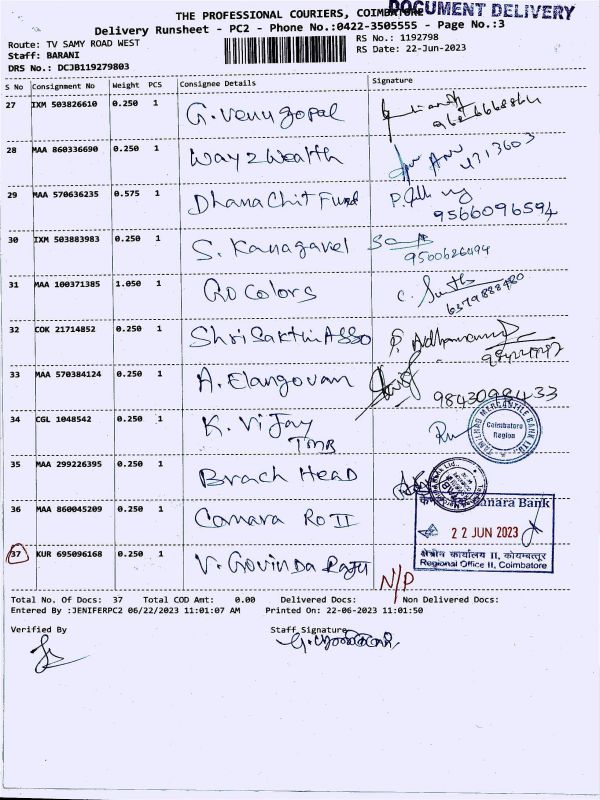 THE PROFESSIONAL COURIERS, COIMBATORE
DOCUMENT DELIVERY
Delivery Runsheet - PC2 - Phone No.:0422-3505555 - Page No.:3
Route: TV SAMY ROAD WEST
RS No.: 1192798
Staff: BARANI
RS Date: 22-Jun-2023
DRS No.: DCJB119279803
S No Consignment No Weight PCS Consignee Details Signature
27 IXM 503826610 0.250 1 G. Venugopal
28 MAA 860336690 0.250 1 Way 2 Wealth 4713603
29 MAA 570636235 0.575 1 Dhana Chit Fund
9566096594
30 IXM 503883983 0.250 1 S. Kanagavel
9500626494
31 MAA 100371385 1.050 1 Go Colors
6379888480
32 COK 21714852 0.250 1 Shri Sakthi Asso
33 MAA 570384124 0.250 1 A. Elangovan 9843098433
34 CGL 1048542 0.250 1 K. Vijay
TMB
TAMILNAD MERCANTILE BANK LTD.
Coimbatore
Region
35 MAA 299226395 0.250 1 Brach Head
36 MAA 860045209 0.250 1 Canara Ro II
Canara Bank
22 JUN 2023
क्षेत्रीय कार्यालय II, कोयम्बत्तूर
Regional Office II, Coimbatore
37 KUR 695096168 0.250 1 V. Govinda Raju
N/P
Total No. Of Docs: 37 Total COD Amt: 0.00 Delivered Docs: Non Delivered Docs:
Entered By :JENIFERPC2 06/22/2023 11:01:07 AM Printed On: 22-06-2023 11:01:50
Verified By Staff Signature